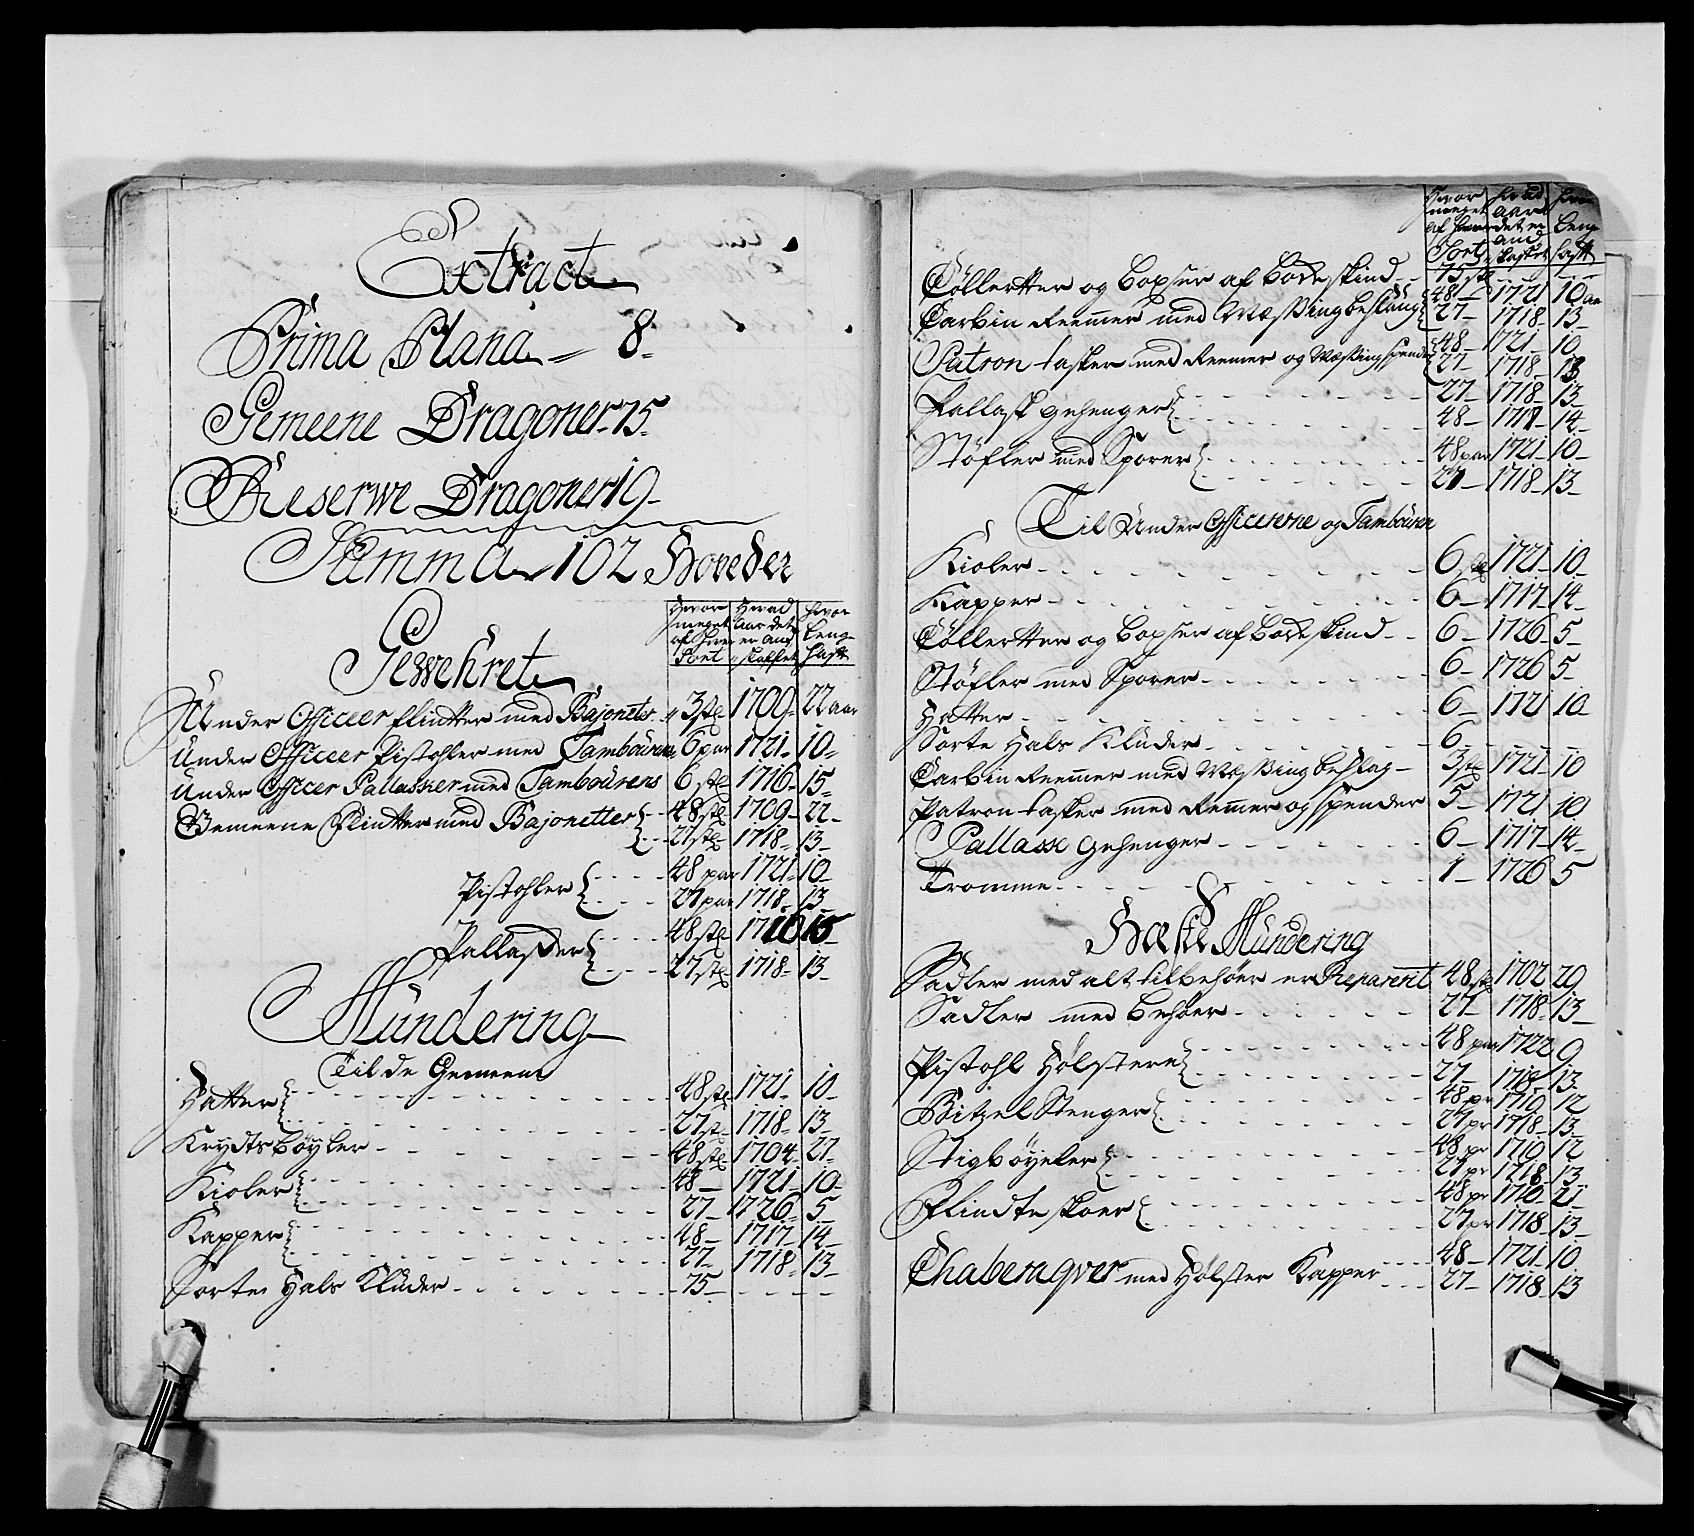 Extract
Prima Plana 8-
Gemeene Dragoner 75-
Reserwe Dragoner 19-
Summa 102 Hoveder
Hvor meget af hver Sort | Hvad Aar det er and skaffet | Hvor Leng haft
Gewehret
Under Officeer flintter med Bajoneter 3 stl 1709- 22 aar
Under Officeer Pistohler med Tambouren 6 par 1721- 10-
Under Officer Pallasker med Tambourens 6 stl 1716- 15-
Gemeene Flintter med Bajonetter { 48 stl 1709- 22-
27 stl 1718- 13-
Pistohler { 48 par 1721- 10-
27 par 1718- 13-
Pallasker { 48 stl 1716 15
27 stl 1718- 13-
Mundering
Til de Gemeene
Hatter { 48 stl 1721- 10-
27 st- 1718- 13-
Krydtsbøyler 48 stl 1704- 27-
Kioler { 48- 1721- 10-
27- 1726- 5-
Kapper { 48- 1717- 14-
27- 1718- 13-
Sorte Hals Kluder 75-
Hvor meget af hver Sort | Hvad aar det er and skaffet | Leng haft
Cøllertter og Boxser af Bockeskind 75 stl
Carbin Remmer med Messingbeslaug { 48- 1721 10 aar
27- 1718- 13-
Patron tasker med Reemer og Messingspender { 48- 1721- 10
27- 1718- 13
Pallask gehenger { 27- 1718- 13-
48- 1717- 14-
Støfler med Sporer { 48 par 1721- 10-
27- 1718- 13-
Til Under Officererne og Tambouren
Kioler 6 stl 1721- 10-
Kapper 6- 1717- 14-
Cøllertter og Boxser af Bockeskind 6- 1726- 5-
Støfler med Sporer 6- 1726 5-
Hatter 6- 1721 10-
Sorte Hals Kluder 6-
Carbin Reemer med Messingbeslag 3 stl 1721- 10
Patron tasker med Remer og spender 5- 1721 10
Pallask gehenger 6- 1717- 14-
Tromme 1- 1726 5
Heste Mundering
Sadler med alt tilbehøer er Reparerit 48 stl 1702 29
Sadler med Behøer 27- 1718- 13-
Pistohl Hølstere { 48 par 1722 9
27- 1718- 13-
Bitzel Stenger { 48 pr 1719 12
27 pr 1718- 13-
Stigbøyeler { 48 pr 1719 12
27 pr 1718- 13
Flindteskoer { 48 pr 1710- 21
27 pr 1718- 13-
Chaberaqver med Hølster Kapper 48- 1721- 10
27- 1718- 13